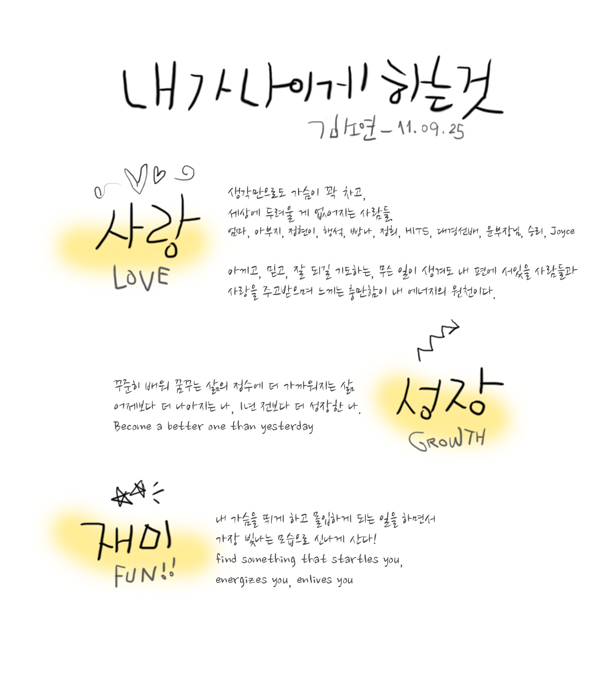 내가 나이게 하는것
김소연 - 11.09.25
사랑
LOVE
생각만으로도 가슴이 꽉 차고,
세상에 두려울 게 없어지는 사람들
엄마, 아부지, 정현이, 행석, 빵나, 정희, HITS, 대경선배, 윤부장님, 수리, Joyce
아끼고, 믿고, 잘 되길 기도하는, 무슨 일이 생겨도 내 편에 서있을 사람들과
사랑을 주고받으며 느끼는 충만함이 내 에너지의 원천이다.
꾸준히 배워 꿈꾸는 삶의 정수에 더 가까워지는 삶
어제보다 더 나아지는 나, 1년 전보다 더 성장한 나.
Become a better one than yesterday
성장
GROWTH
재미
FUN!!
내 가슴을 뛰게 하고 몰입하게 되는 일을 하면서
가장 빛나는 모습으로 신나게 산다!
find something that startles you,
energizes you, enlives you